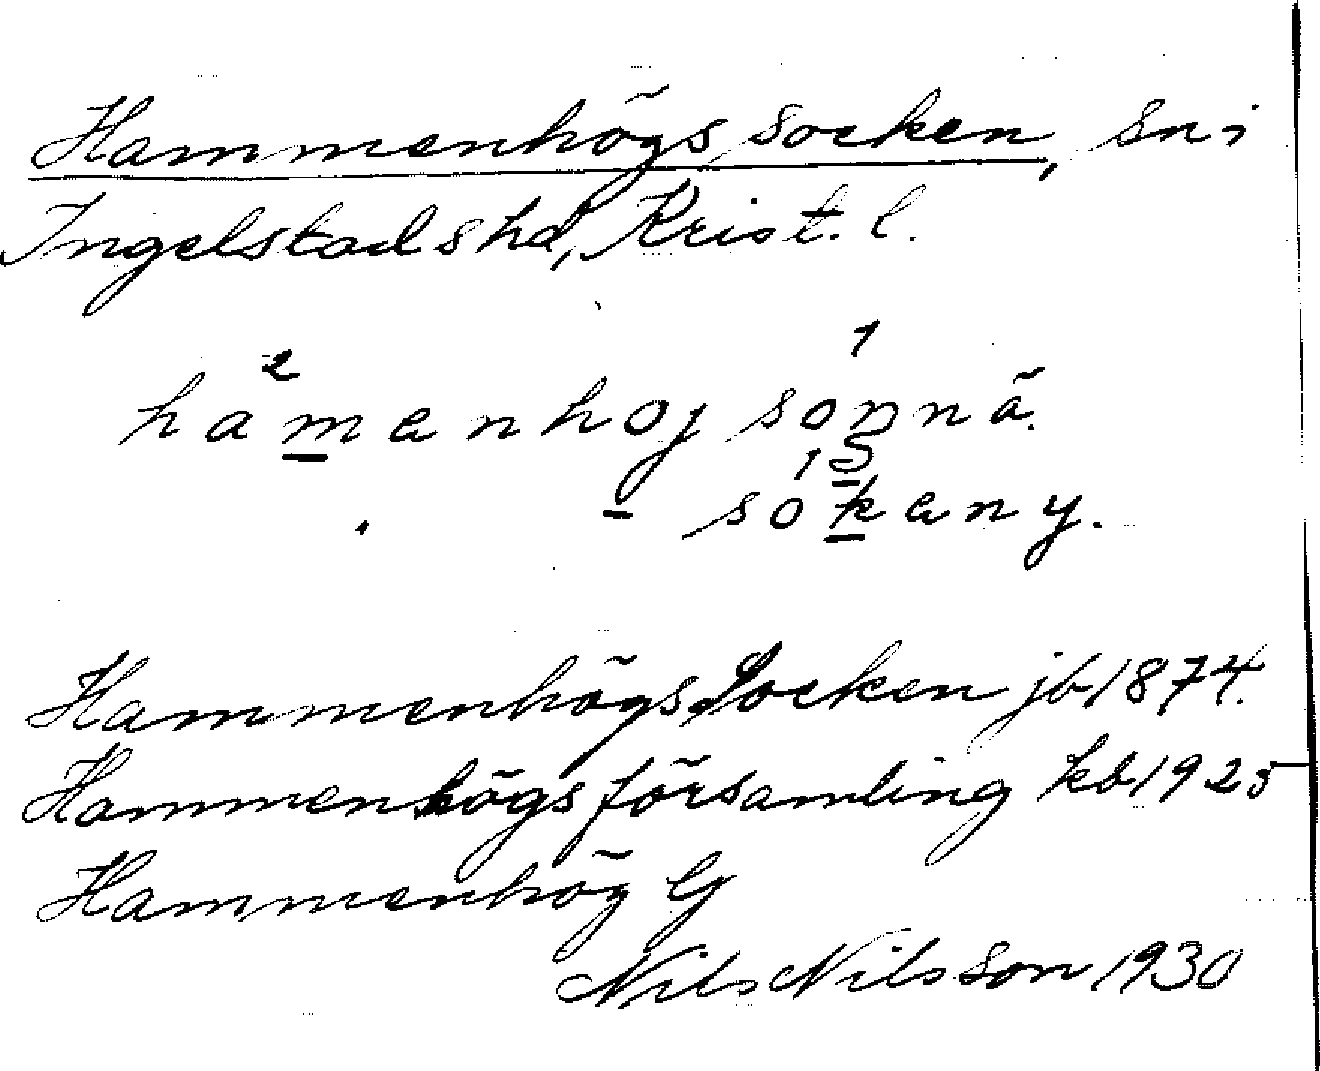 Hammenhögs socken, sn i
Ingelstads hd, Krist. l.
Hammenhögs Socken jb 1874.
Hammenhögs församling kb 1925
Hammenhög G
Nils Nilsson 1930